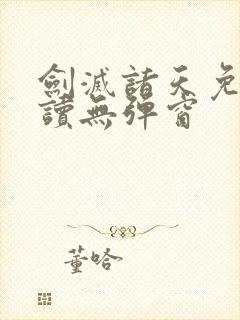 劍滅諸天免
讀無彈窗
董哈